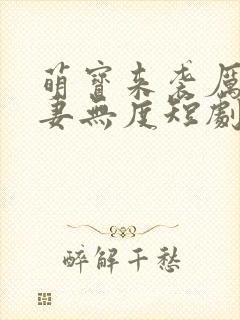 萌寶來袭厲
妻無度短劇
醉解千愁